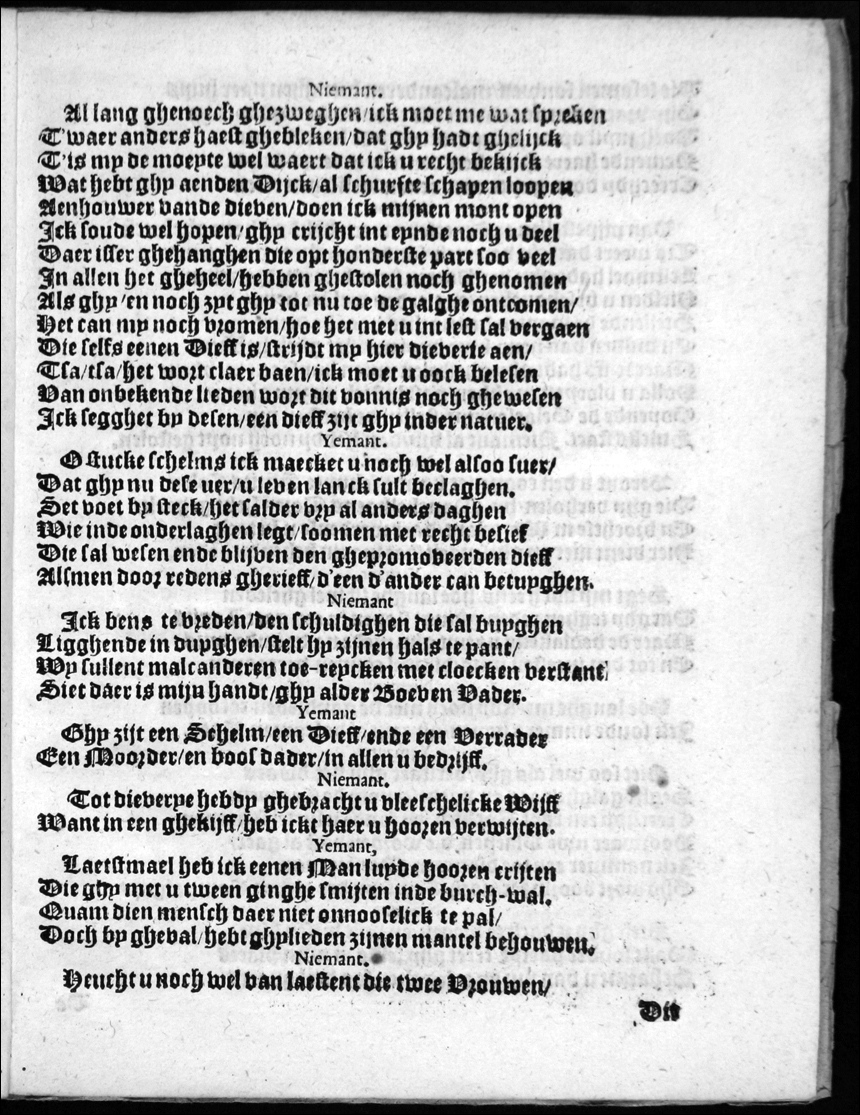 Niemant.
Al lang ghenoech ghezweghen/ick moet me wat spreken
T'waer anders haest ghebleken/dat ghy hadt ghelijck
T'is my de moeyte wel waert dat ick u recht bekijck
Wat hebt ghy aenden Dijck/al schurfte schapen loopen
Aenhouwer vande dieven/doen ick mijnen mont open
Ick soude wel hopen/ghy crijcht int eynde noch u deel
Daer isser ghehanghen die opt honderste part soo veel
In allen het gheheel/hebben ghestolen noch ghenomen
Als ghy/en noch zyt ghy tot nu toe de galghe ontcomen/
Het can my noch vromen/hoe het met u int lest sal vergaen
Die selfs eenen Dieff is/strijdt my hier dieverie aen/
Tsa/tsa/het wort claer baen/ick moet u oock belesen
Van onbekende lieden wort dit vonnis noch ghewesen
Ick segghet by desen/een dieff zijt ghy inder natuer.
Yemant.
O stucke schelms ick maecket u noch wel alsoo suer/
Dat ghy nu dese uer/u leven lanck sult beclaghen.
Set voet by steck/het salder vry al anders daghen
Wie inde onderlaghen legt/soomen met recht besief
Die sal wesen ende blijven den ghepromoveerden dieff
Alsmen door redens gherieff/d'een d'ander can betuyghen.
Niemant
Ick bens te vreden/den schuldighen die sal buyghen
Ligghende in duyghen/stelt hy zijnen hals te pant/
Wy sullent malcanderen toe-reycken met cloecken verstant
Siet daer is mijn handt/ghy alder Boeven Vader.
Yemant
Ghy zijt een Schelm/een Dieff/ende een Verrader
Een Moorder/en boos dader/in allen u bedrijff.
Niemant.
Tot dieverye hebdy ghebracht u vleeschelicke Wijff
Want in een ghekijff/heb ickt haer u hooren verwijten.
Yemant,
Laetstmael heb ick eenen Man luyde hooren crijten
Die ghy met u tween ginghe smijten inde burch-wal.
Quam dien mensch daer niet onnooselick te pal/
Doch by gheval/hebt ghylieden zijnen mantel behouwen.
Niemant.
Heucht u noch wel van laestent die twee Vrouwen/
Dit